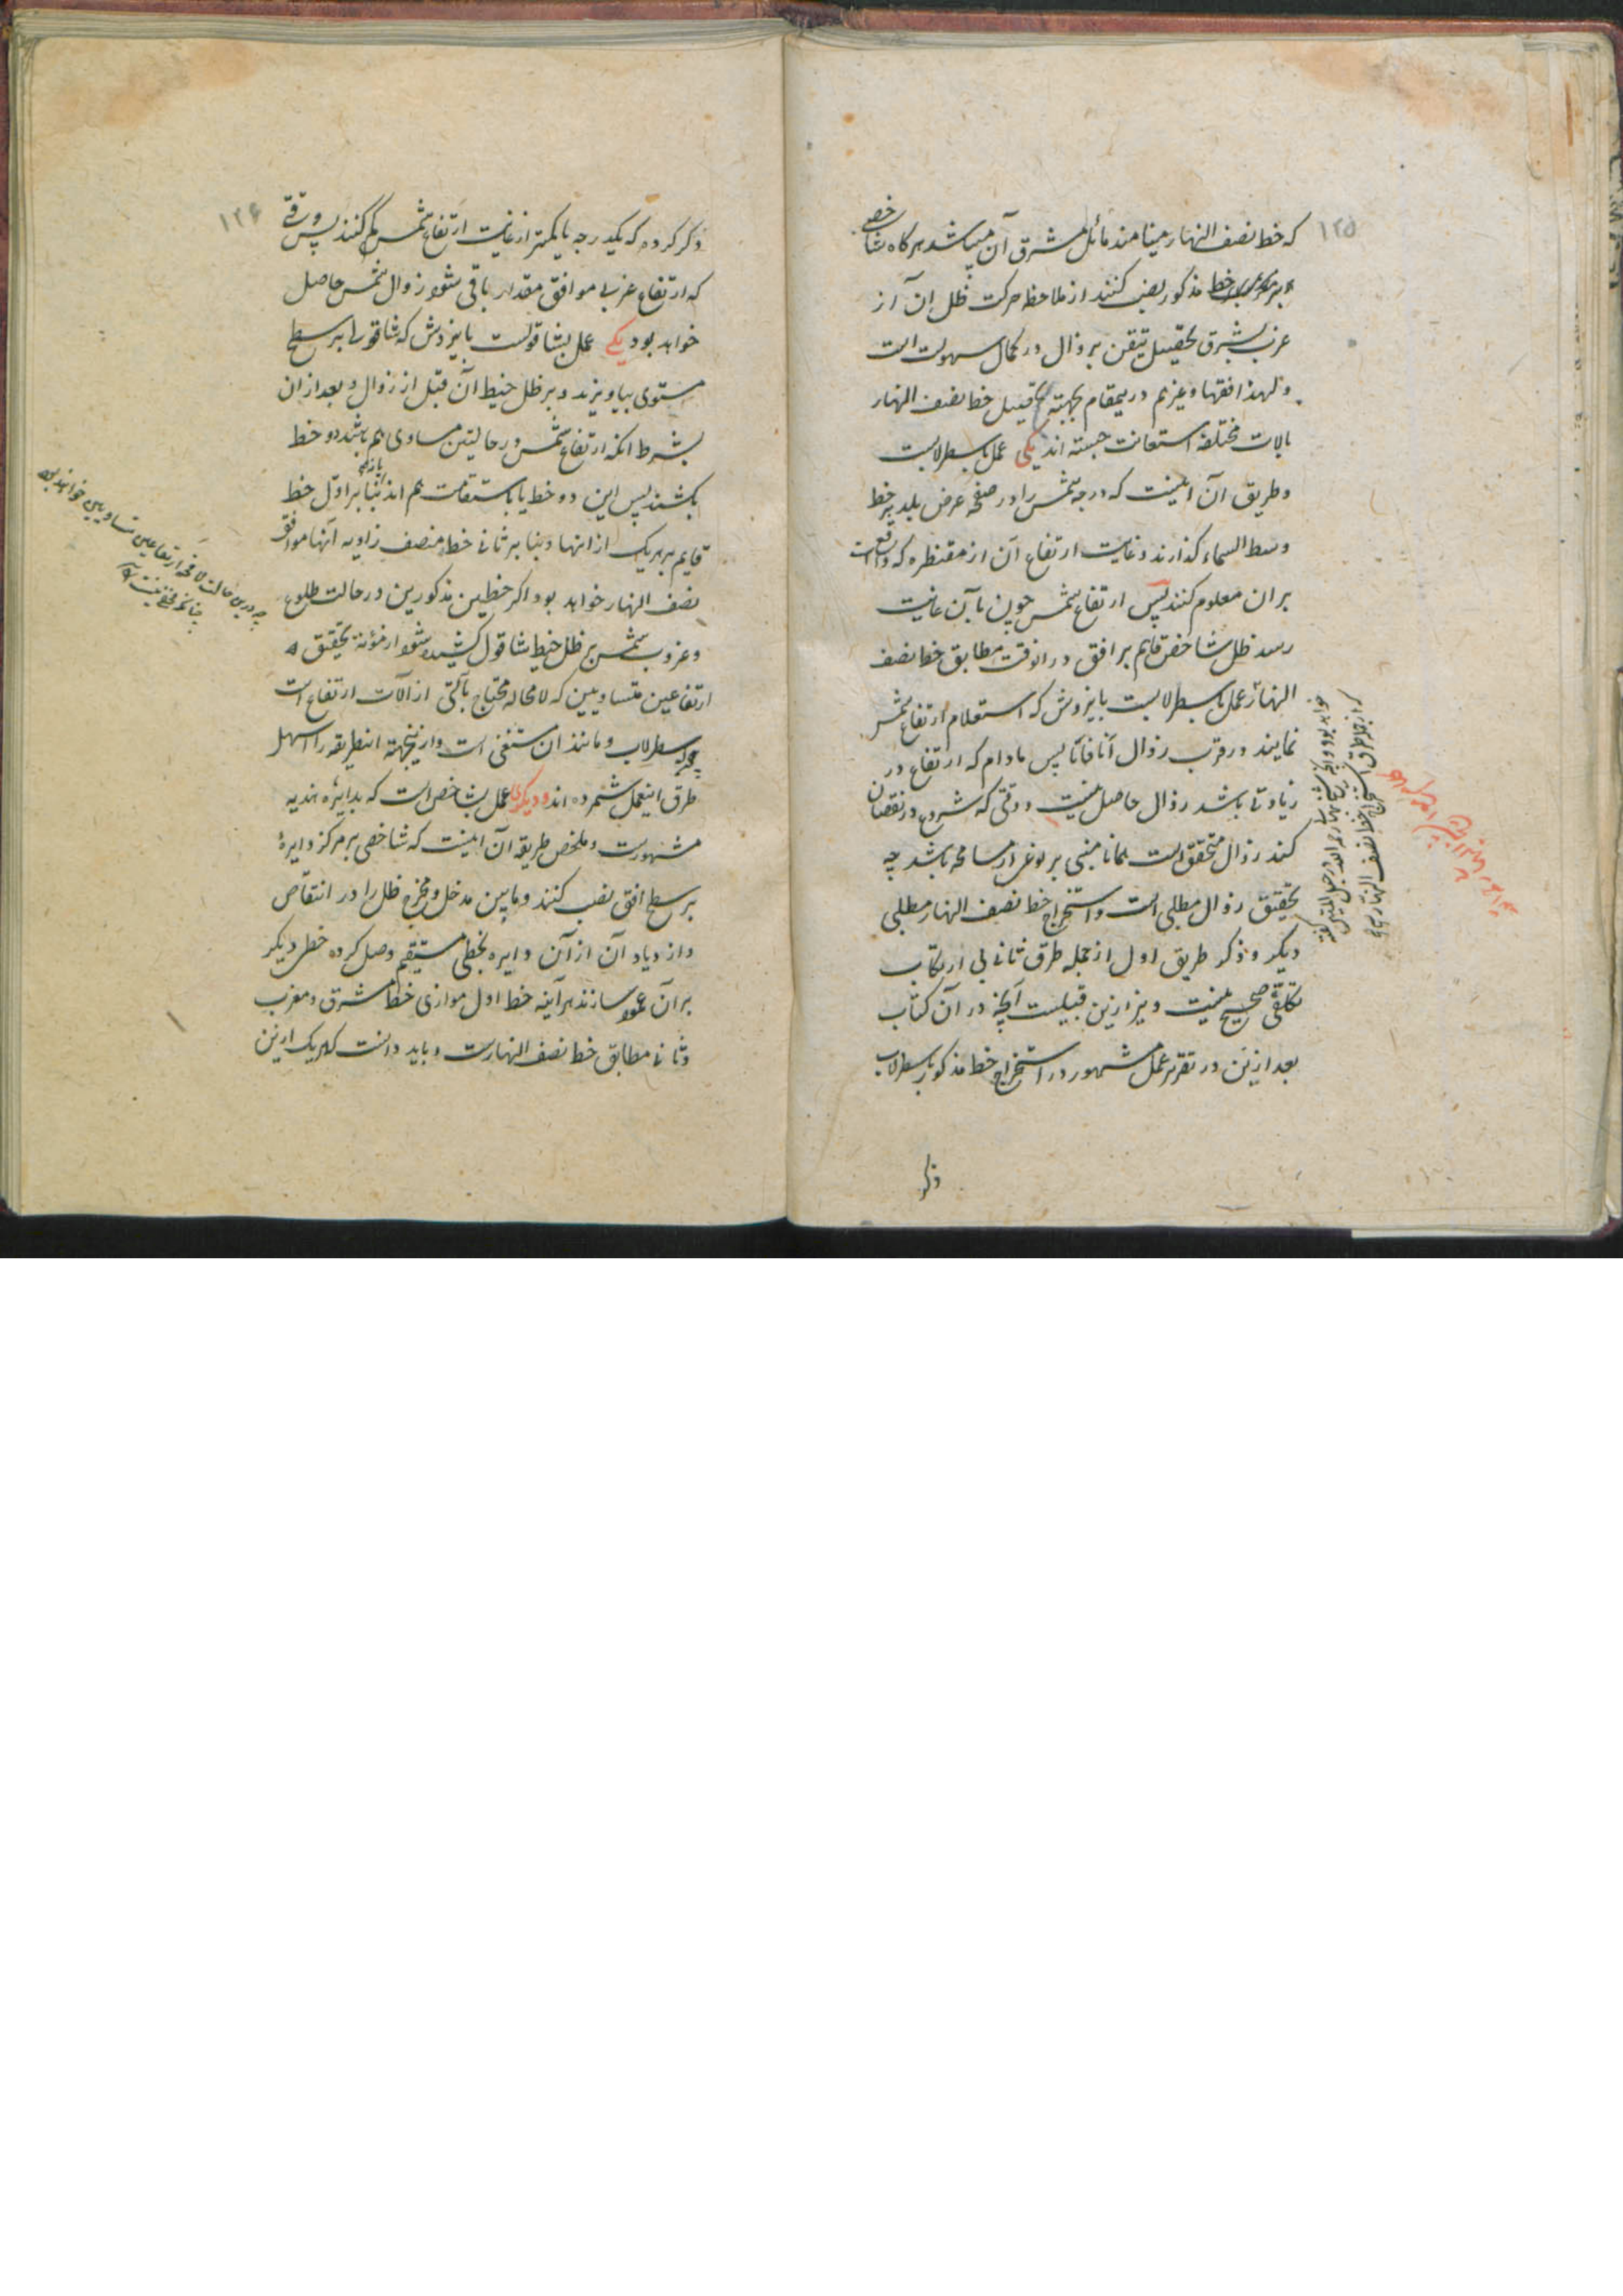 ۱۲۵
که خط نصف النهار مینامند مائل بمشرق آن میباشد هرکاه شاخصی
بر خط مذکور نصب کنند از ملاحظه حرکت ظل آن از
غرب بشرق تحصیل تیقن بر زوال در کمال سهولت است
و لهذا فقها و غیرهم درینمقام بجهة تحصیل خط نصف النهار
بالات مختلفه استعانت جسته اند یکی عمل باسطرلابست
و طریق آن اینست که درجه شمس را در صفحه عرض بلد بر خط
وسط السماء گذارند و غایت ارتفاع آن از مقنطره که واقع است
بران معلوم کنند پس ارتفاع شمس چون بآن غایت
رسد ظل شاخص قایم بر افق در انوقت مطابق خط نصف
النهار عمل باسطرلابست باینروش که استعلام ارتفاع شمس
نمایند در قرب زوال آنا فآنا پس مادام که ارتفاع در
زیادتی باشد زوال حاصل نیست و وقتی که شروع در نقصان
کند زوال متحقق است همانا مبنی بر نوعی از مسامحه باشد چه
تحقیق زوال مطلبی است و استخراج خط نصف النهار مطلبی
دیکر و ذکر طریق اول از جمله طرق ثانی بی ارتکاب
تکلفی صحیح نیست و نیز ازین قبیلست آنچه در آن کتاب
بعد ازین در تقریر عمل مشهور در استخراج خط مذکور باسطرلاب
ذکر
خواهد بود و آنچه شیخ بهاء رحمه الله در حبل المتین گفته
که از جمله طرق استخراج خط نصف النهار یکی
۱۲۶
ذکر کرده که یکدرجه یا کمتر از غایت ارتفاع شمس کم کنند پس وقتی
که ارتفاع غربی موافق مقدار باقی شود زوال شمس حاصل
خواهد بود یکی عمل بشاقولست باینروش که شاقولی بر سطح
مستوی بیاویزند و بر ظل خیط آن قبل از زوال و بعد ازان
بشرط انکه ارتفاع شمس در حالتین مساوی هم باشد دو خط
بکشند پس این دو خط یا باستقامت هم اند یا نه بنا بر اول خط
قایم بر هریک از انها و بنا بر ثانی خط منصف زاویه آنها موافق
نصف النهار خواهد بود اکر خطین مذکورین در حالت طلوع
و غروب شمس بر ظل خیط شاقول کشیده شود از مؤنة تحقیق
ارتفاعین متساویین که لامحاله محتاج بآلتی از آلات ارتفاع است
چون اسطرلاب و مانند ان مستغنی است و ازینجهة اینطریقه را اسهل
طرق اینعمل شمرده اند و دیکری عمل بشاخص است که بدایره هندیه
مشهورست و ملخص طریقه آن اینست که شاخصی بر مرکز دایرۀ
بر سطح افق نصب کنند و مابین مدخل و مخرج ظل را در انتقاص
و ازدیاد آن از آن دایره بخطی مستقیم وصل کرده خطی دیکر
بر آن عمود سازند هرآینه خط اول موازی خط مشرق و مغرب
و ثانی مطابق خط نصف النهارست و باید دانست که هریک ازین
چه درین حالت لامحاله ارتفاعین متساویین خواهد بود
چنانکه مخفی نیست